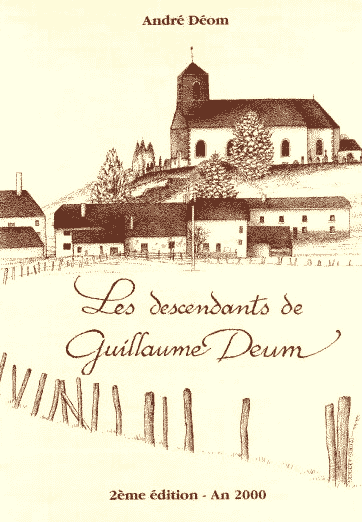 André Déom
Les descendants de
Guillaume Deum
2ème édition - An 2000